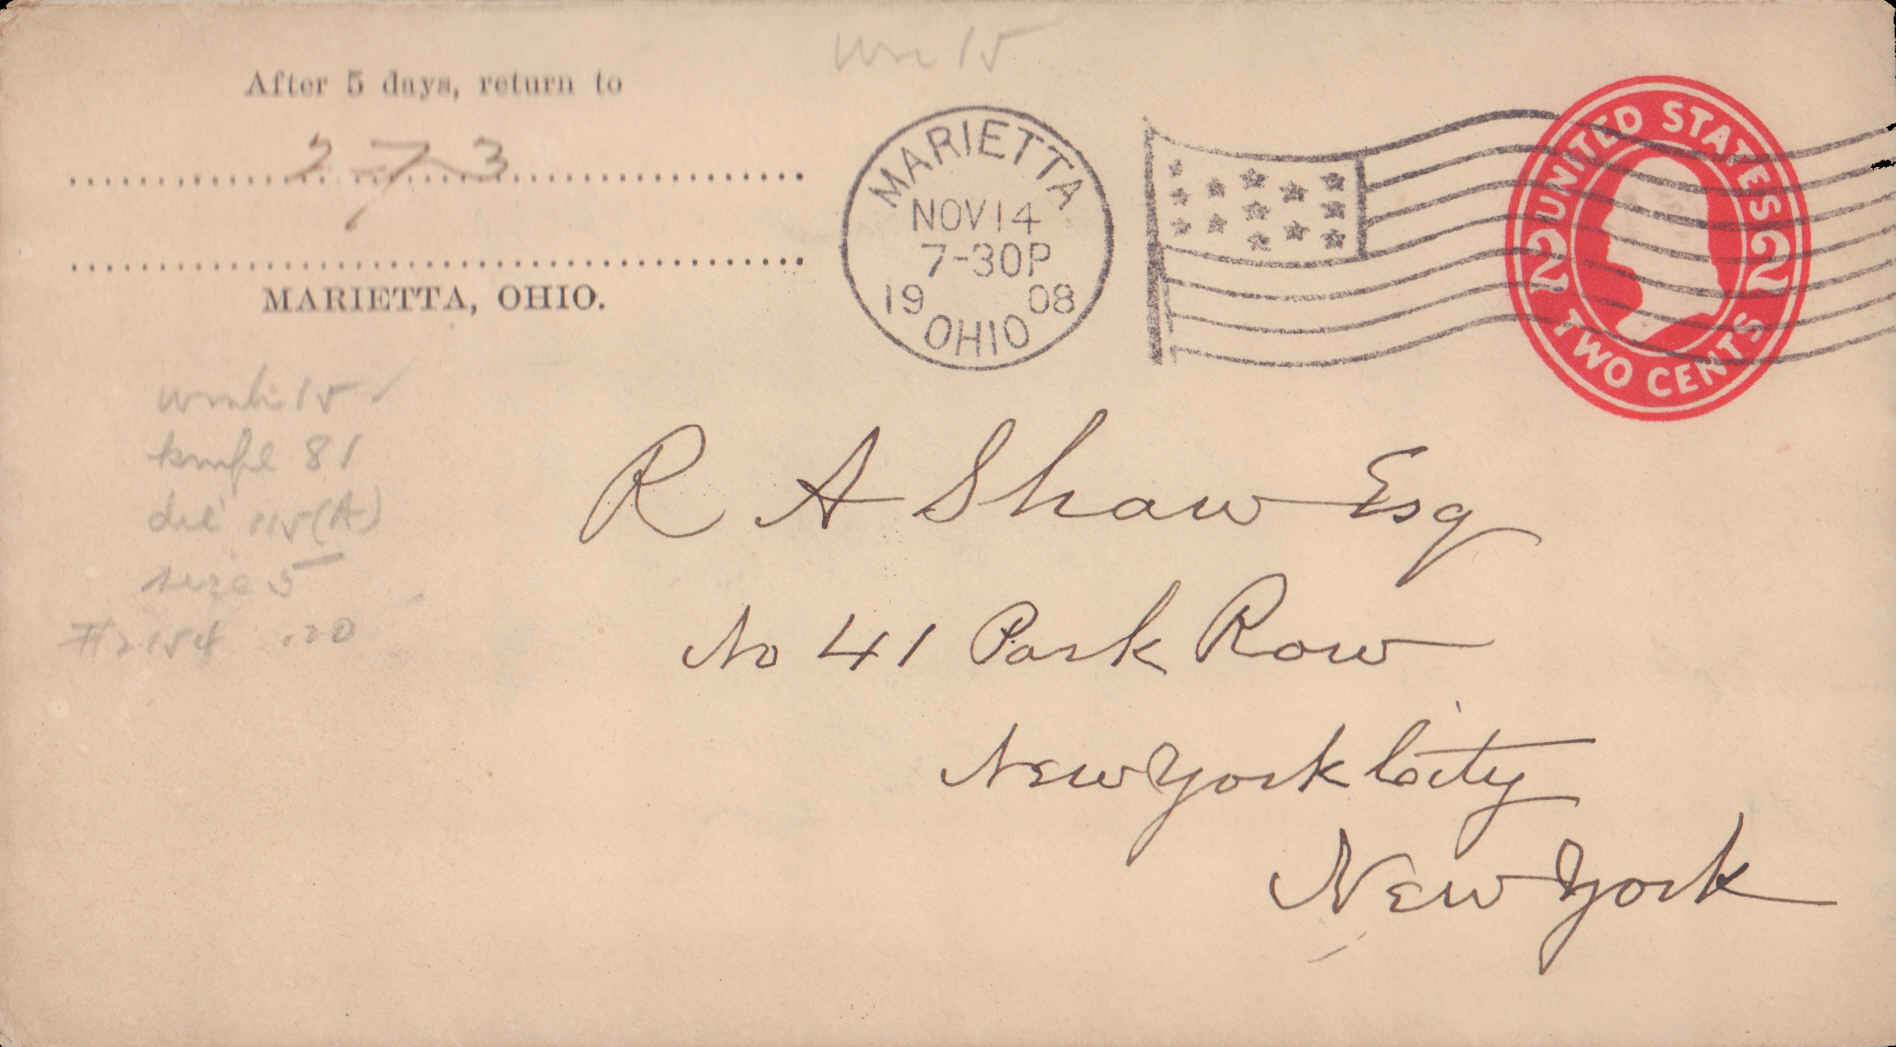 After 5 days, return to
273
MARIETTA, OHIO.
MARIETTA
NOV 14
7-30P
1908
OHIO
UNITED STATES
2 2
TWO CENTS
15
15
knife 81
die 115(A)
size 5
#2154 .20
R A Shaw Esq
No 41 Park Row
New York City
New York